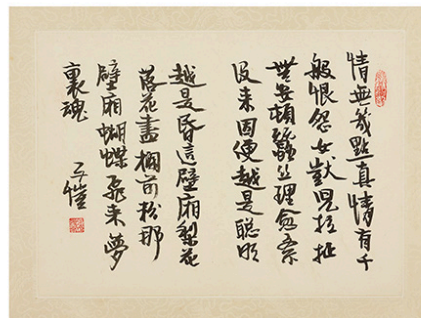 情無幾點真情有千
般恨怨女獃兒拉扯
無安頓蠶絲理愈紊
沒来因便越是聰明
越是昏這壁廂梨花
落花盡欄前粉那
壁廂蝴蝶飛来夢
裏魂
子愷